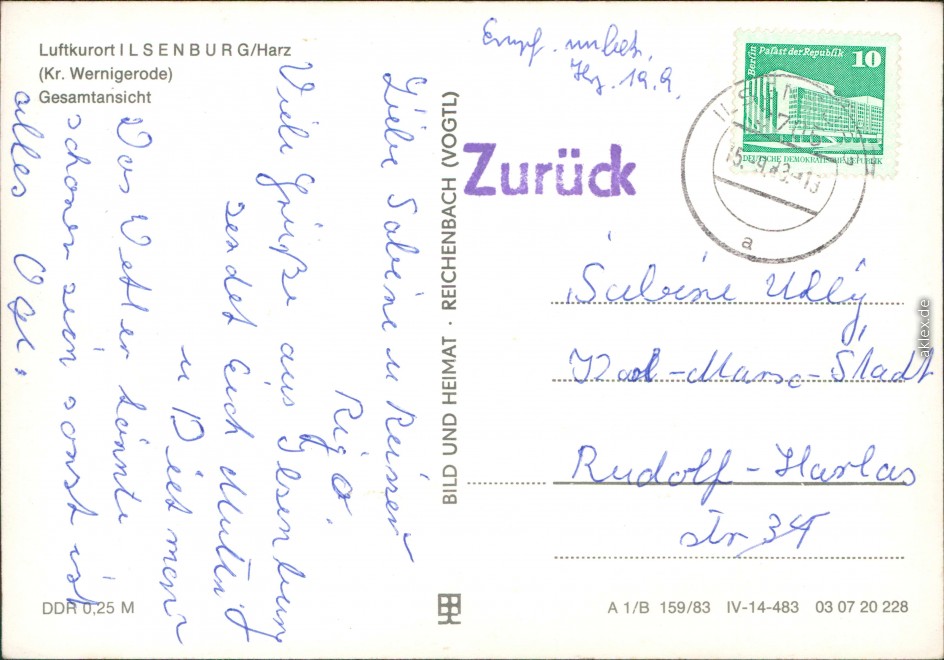 Luftkurort ILSENBURG/Harz
(Kr. Wernigerode)
Gesamtansicht
Empf. unbek.
19.9.
Zurück
Berlin Palast der Republik 10
DEUTSCHE DEMOKRATISCHE REPUBLIK
15.-9.83.-13
a
Liebe Sabine u Reiner
Rigo.
Viele Grüße aus Ilsenburg
sendet Euch Mutti
u Dietmar
Das Wetter könnte
schöner sein sonst ist
alles Ok.
BILD UND HEIMAT · REICHENBACH (VOGTL)
Sabine Ully
Karl-Marx-Stadt
Rudolf-Harlas
str 34
DDR 0,25 M
A 1/B 159/83 IV-14-483 03 07 20 228
aklex.de